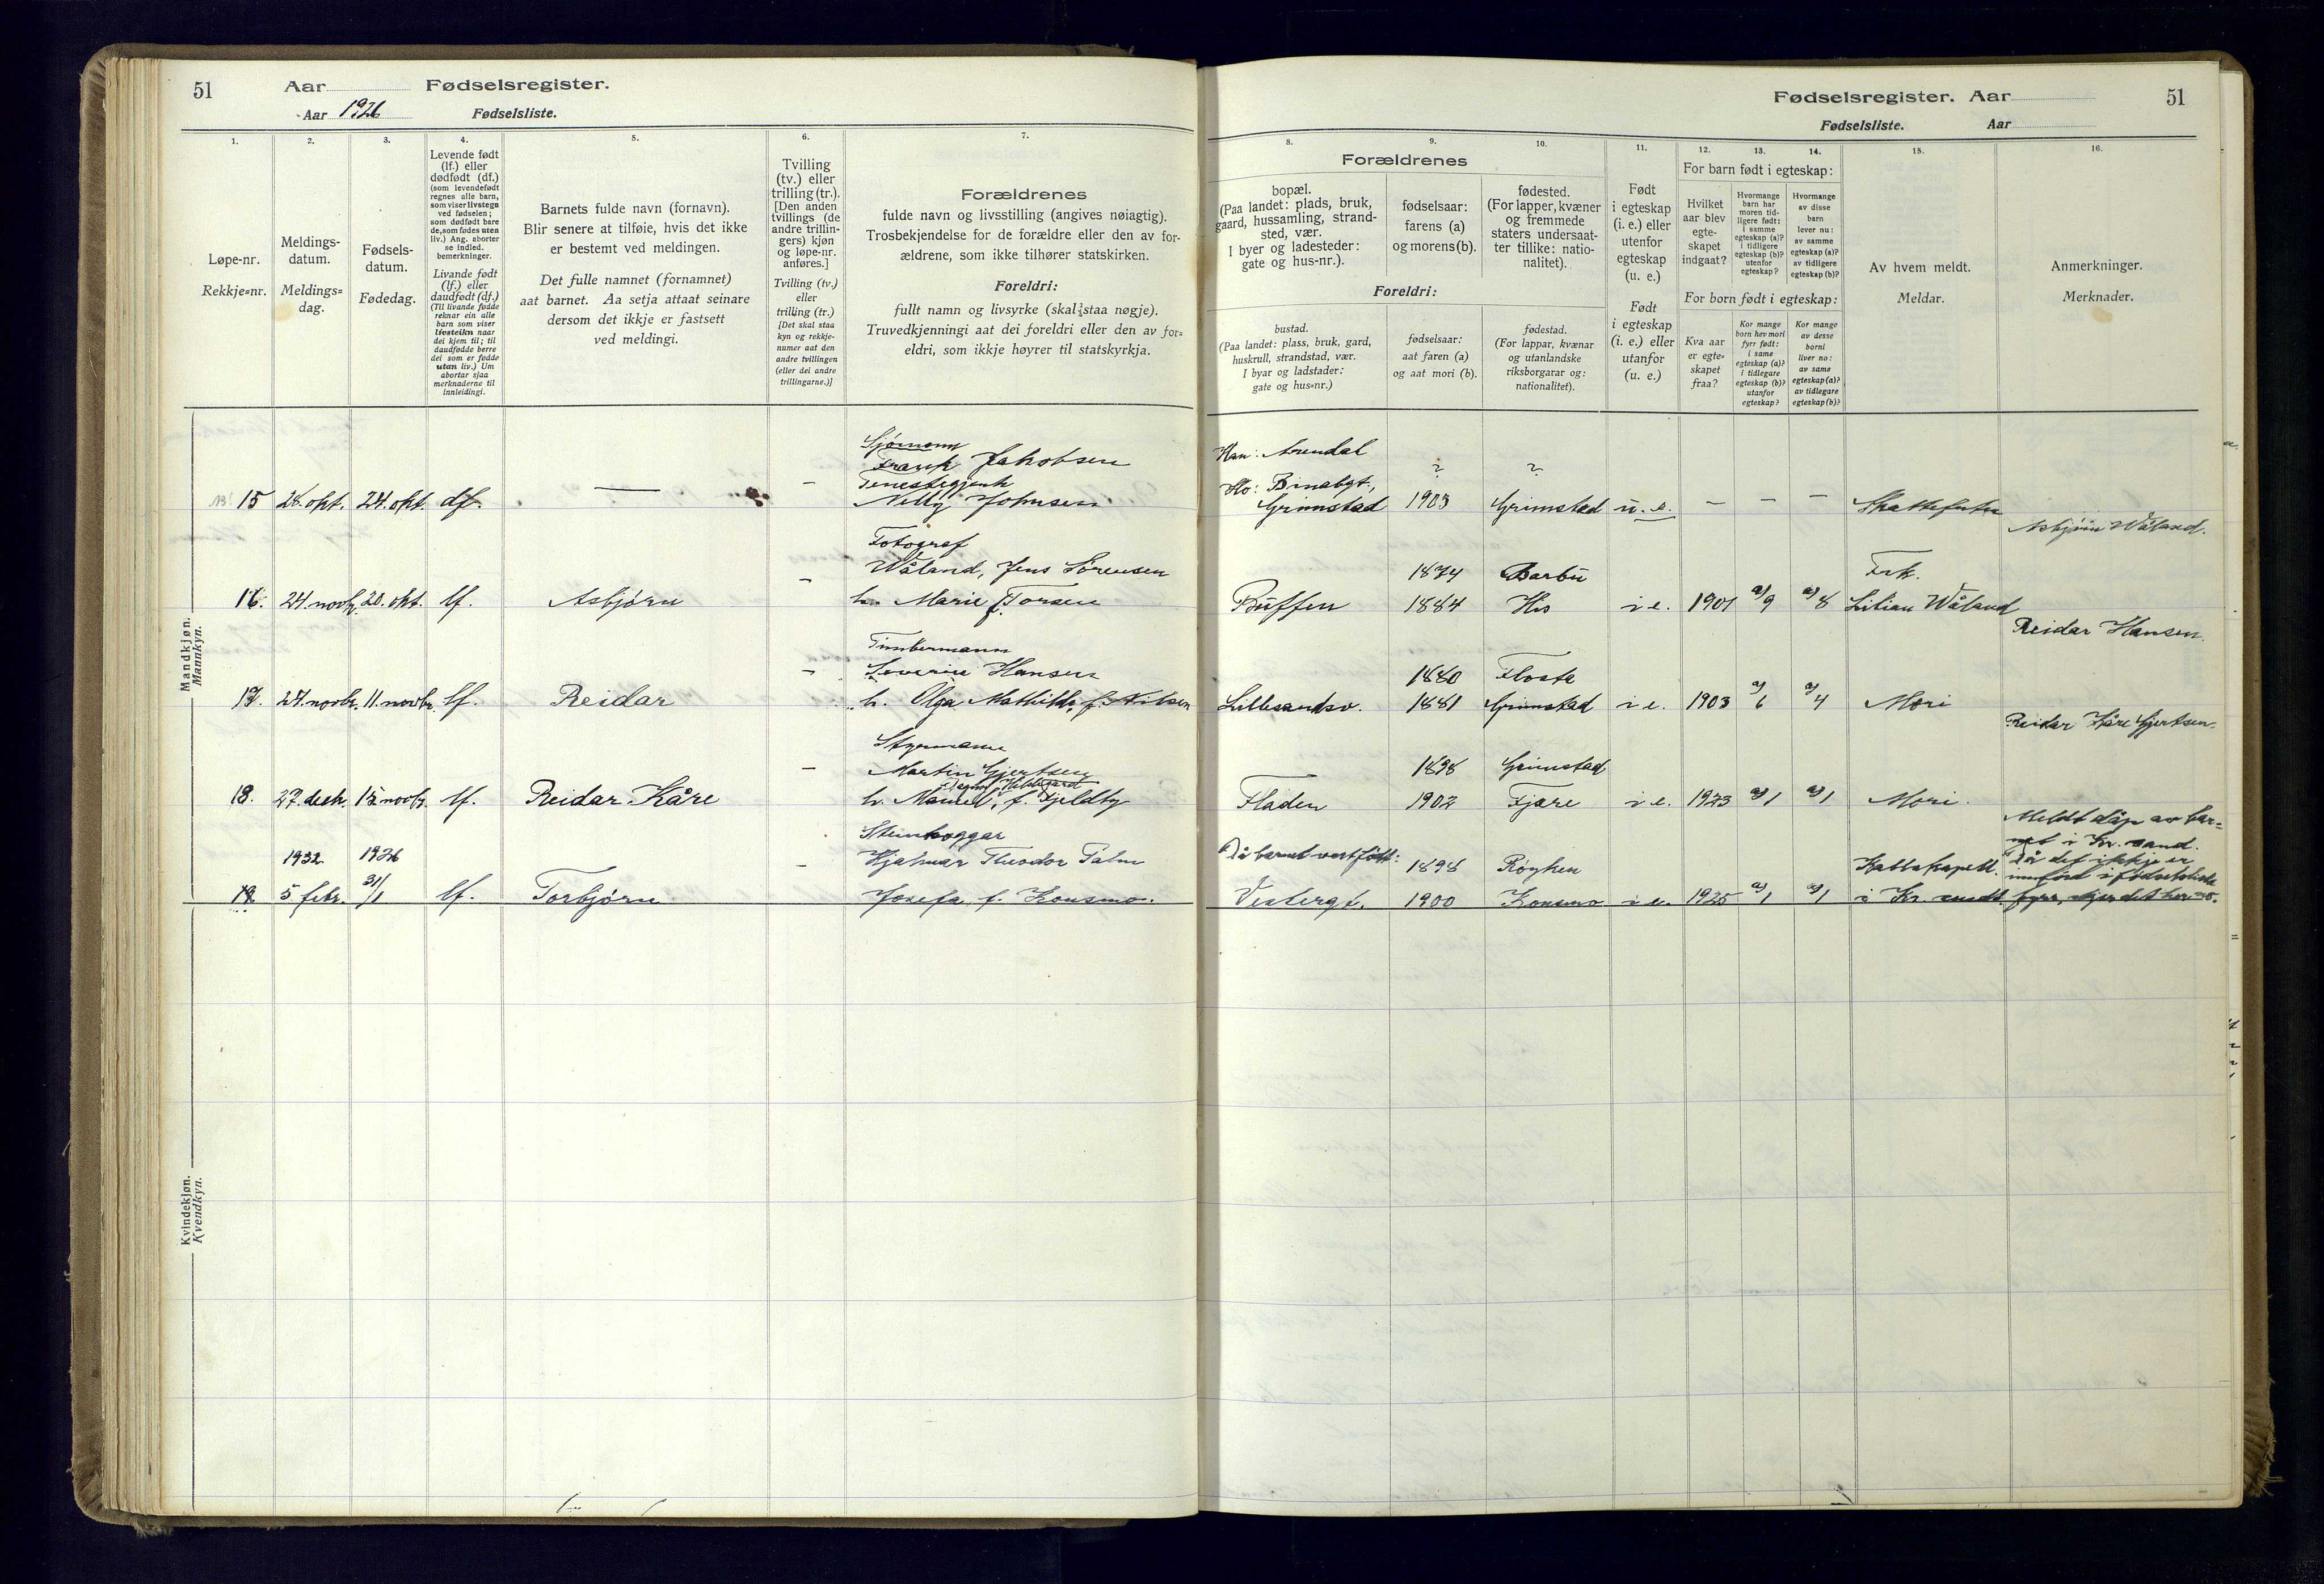 51
Aar
Fødselsregister.
Aar 1926
Fødselsliste.
1.
Løpe-nr.
Rekkje=nr.
2.
Meldings-
datum.
Meldings=
dag.
3.
Fødsels-
datum.
Fødedag.
4.
Levende født
(lf.) eller
dødfødt (df.)
(som levendefødt
regnes alle barn,
som viser livstegn
ved fødselen;
som dødfødt bare
de, som fødes uten
liv.) Ang. aborter
se indled.
bemerkninger.
Livande født
(lf.) eller
daudfødt (df.)
(Til livande fødde
reknar ein alle
barn som viser
livsteikn naar
dei kjem til; til
daudfødde berre
dei som er fødde
utan liv.) Um
abortar sjaa
merknaderne til
innleidingi.
5.
Barnets fulde navn (fornavn).
Blir senere at tilføie, hvis det ikke
er bestemt ved meldingen.
Det fulle namnet (fornamnet)
aat barnet. Aa setja attaat seinare
dersom det ikkje er fastsett
ved meldingi.
6.
Tvilling
(tv.) eller
trilling (tr.).
[Den anden
tvillings (de
andre trillin-
gers) kjøn
og løpe-nr.
anføres.]
Tvilling (tv.)
eller
trilling (tr.)
[Det skal staa
kyn og rekkje-
numer aat den
andre tvillingen
(eller dei andre
trillingarne.)]
7.
Forældrenes
fulde navn og livsstilling (angives nøiagtig).
Trosbekjendelse for de forældre eller den av for-
ældrene, som ikke tilhører statskirken.
Foreldri:
fullt namn og livsyrke (skal staa nøgje).
Truvedkjenningi aat dei foreldri eller den av for=
eldri, som ikkje høyrer til statskyrkja.
Mandkjøn.
Mannkyn.
Kvindekjøn.
Kvendkyn.
Sjømann
Frank Jakobsen
Tenestegjenk
15 28. okt. 24. okt. df. — – Nelly Johnsen
Fotograf
Wåland, Jens Sørensen
16. 24. novbr. 20. okt. lf. Asbjørn – h. Marie f. Torsen
Timbermann
Severin Hansen
17. 27. novbr. 11. novbr. lf. Reidar – h. Olga Mathilde, f. Nilsen
Styrmann
Martin Gjertsen
Dagny Hildegard
18. 27. decbr. 15. novbr. lf. Reidar Kåre – h. f. Fjeldby
Steinhoggar
1932 1926 Hjalmar Theodor Palm
19. 5 febr. 31/1 lf. Torbjørn – Josefa f. Konsmo.
Fødselsregister. Aar
51
Fødselsliste.
Aar
8.
Forældrenes
bopæl.
(Paa landet: plads, bruk,
gaard, hussamling, strand-
sted, vær.
I byer og ladesteder:
gate og hus-nr.).
Foreldri:
bustad.
(Paa landet: plass, bruk, gard,
huskrull, strandstad, vær.
I byar og ladstader:
gate og hus=nr.)
9.
fødselsaar:
farens (a)
og morens (b).
fødselsaar:
aat faren (a)
og aat mori (b).
10.
fødested.
(For lapper, kvæner
og fremmede
staters undersaat-
ter tillike: natio-
nalitet).
fødestad.
(For lappar, kvænar
og utanlandske
riksborgarar og:
nationalitet).
11.
Født
i egteskap
(i. e.) eller
utenfor
egteskap
(u. e.)
Født
i egteskap
(i. e.) eller
utanfor
(u. e.)
12. 13. 14.
For barn født i egteskap:
Hvilket
aar blev
egte-
skapet
indgaat?
Hvormange
barn har
moren tid-
ligere født:
i samme
egteskap (a)?
i tidligere
egteskap (b)?
utenfor
egteskap?
Hvormange
av disse
barn
lever nu:
av samme
egteskap (a)?
av tidligere
egteskap (b)?
For born født i egteskap:
Kva aar
er egte=
skapet
fraa?
Kor mange
born hev mori
fyrr født:
i same
egteskap (a)?
i tidlegare
egteskap (b)?
utanfor
egteskap?
Kor mange
av desse
borni
liver no:
av same
egteskap (a)?
av tidlegare
egteskap (b)?
15.
Av hvem meldt.
Meldar.
16.
Anmerkninger.
Merknader.
Han: Arendal ? ?
Ho: Binabgt.,
Grimstad 1903 Grimstad u. e. – – – Skattefuten
Asbjørn Wåland.
1874 Barbu Frk.
Buffen 1884 His i e. 1901 a) 9 a) 8 Lilian Wåland
Reidar Hansen.
1880 Flosta
Lillesandsv. 1881 Grimstad i e. 1903 a) 6 a) 4 Mori
Reidar Kåre Gjertsen.
1898 Grimstad
Fladen 1902 Fjære i e. 1923 a) 1 a) 1 Mori.
Meldt dåp av bar=
net i Kr.sand.
Då barnet vart født: 1898 Røyken Kallskapell. Då det ikkje er
innførd i fødselsliste
Vesterg. 1900 Konsmo i e. 1925 a) 1 a) 1 i Kr. sandt. fyrr, skjer det her no.